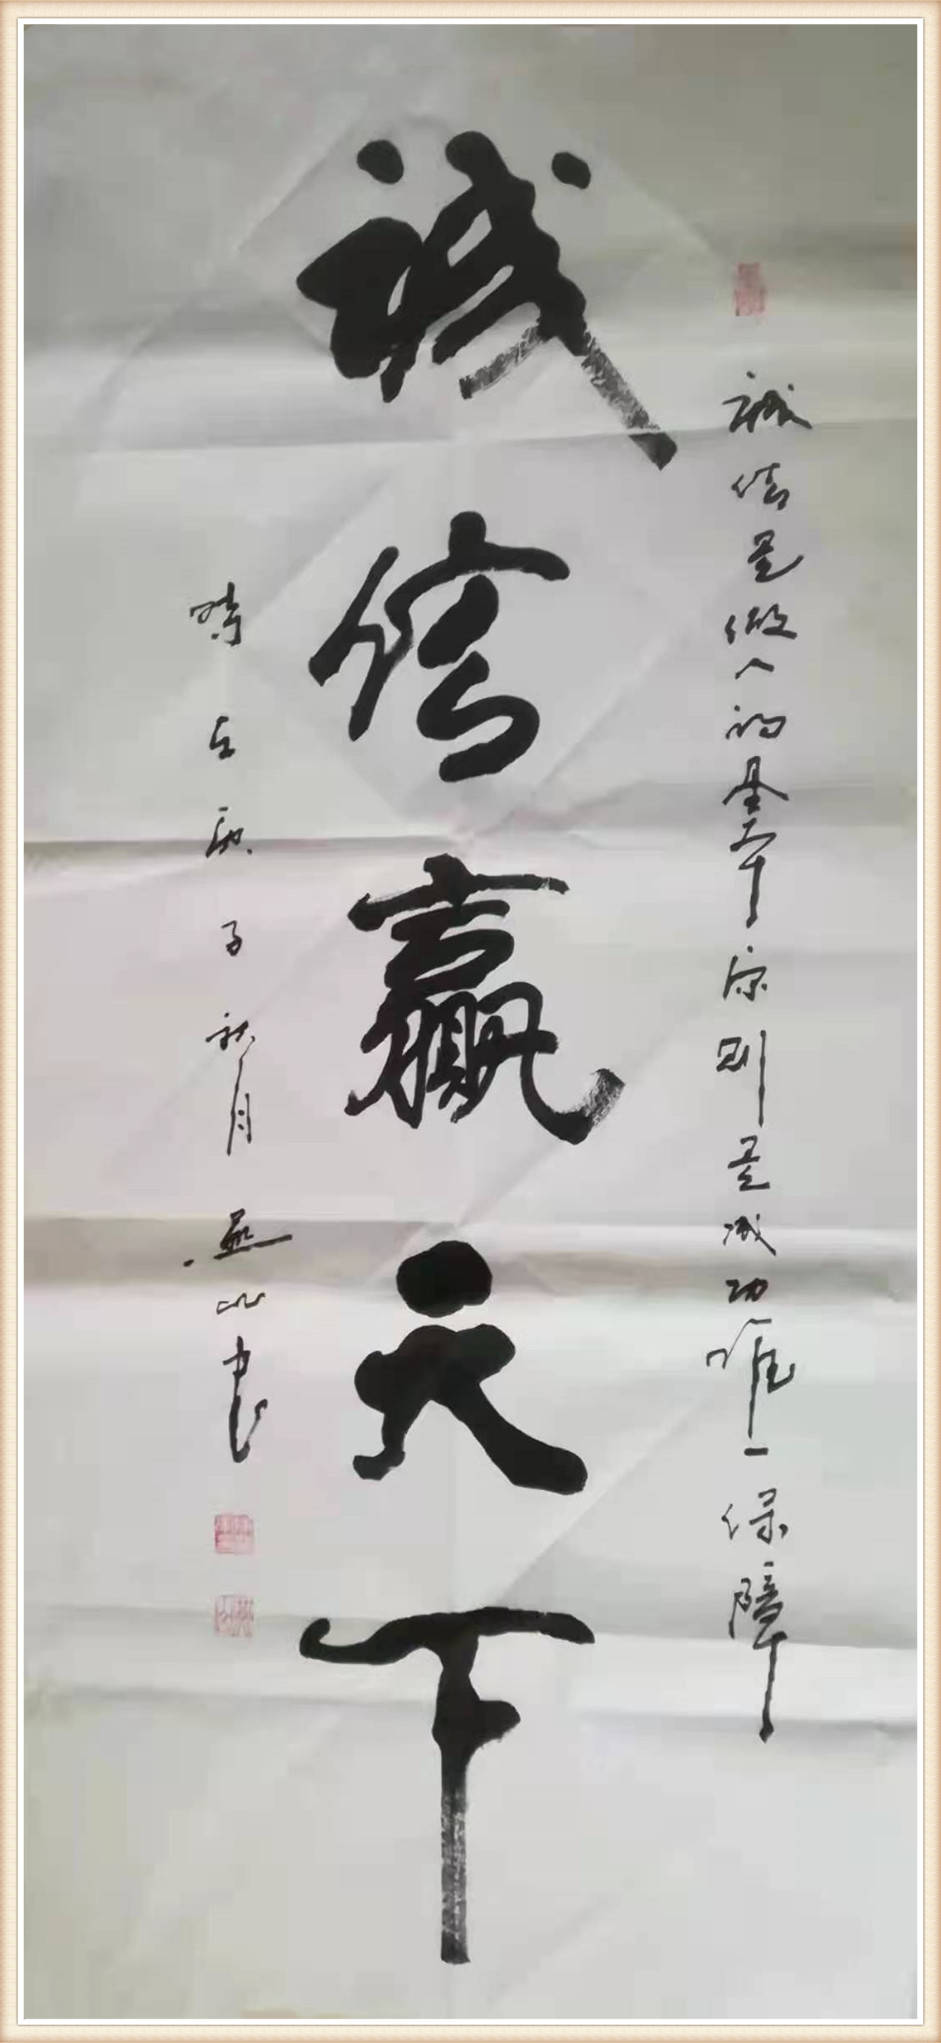 誠信是做人的基本原则是成功唯一保障
誠信赢天下
時在庚子秋月燕山書